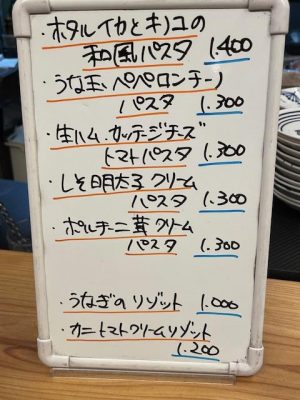 ・ホタルイカとキノコの
和風パスタ 1.400
・うな玉、ペペロンチーノ
パスタ 1.300
・生ハム、カッテジチーズ
トマトパスタ 1.300
・しそ明太子クリーム
パスタ 1.300
・ポルチーニ茸クリーム
パスタ 1.300
・うなぎのリゾット 1.000
・カニトマトクリームリゾット
1.200